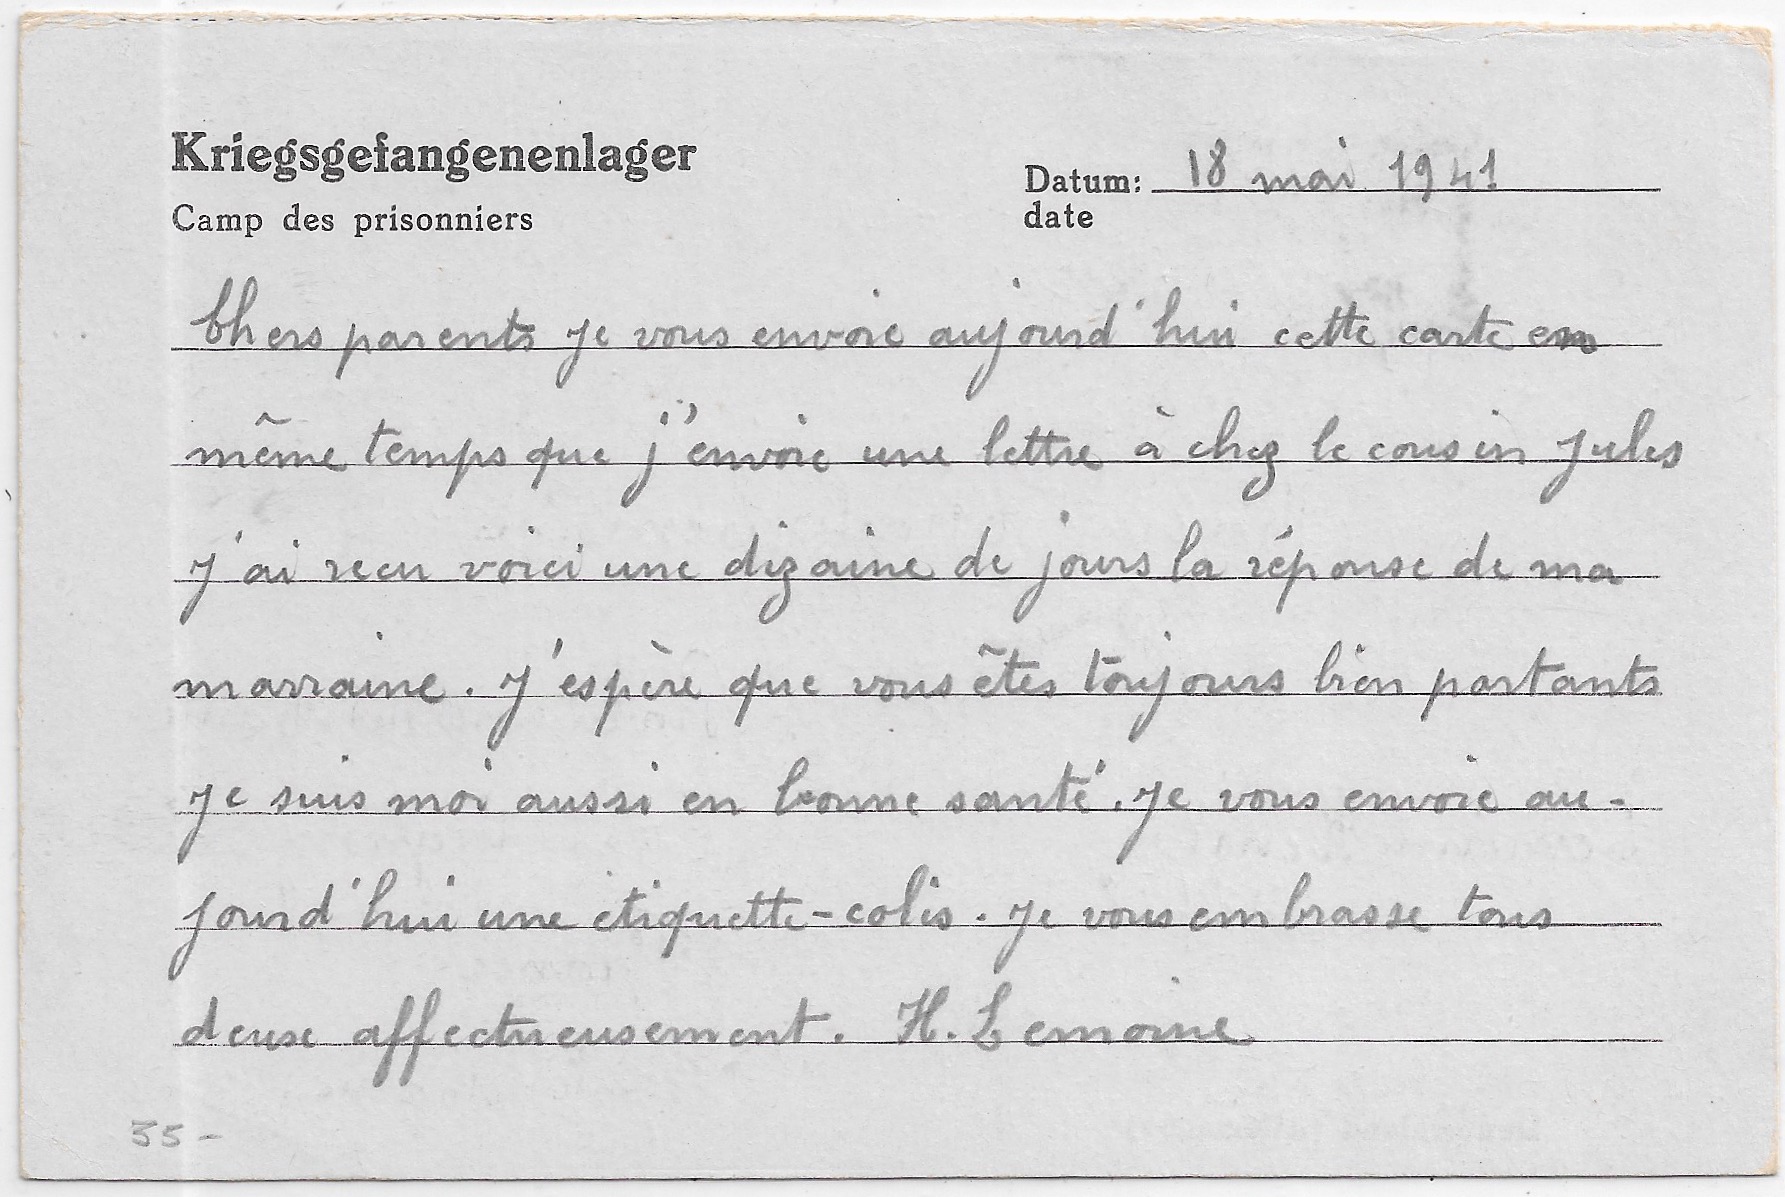 Kriegsgefangenenlager
Camp des prisonniers
Datum: 18 mai 1941
date
Chers parents Je vous envoie aujourd'hui cette carte en
même temps que j'envoie une lettre à chez le cousin Jules
J'ai recu voici une dizaine de jours la réponse de ma
marraine. J'espère que vous êtes toujours bien portants
Je suis moi aussi en bonne santé. Je vous envoie au-
jourd'hui une étiquette-colis. Je vous embrasse tous
deux affectueusement. H. Lemoine
35-